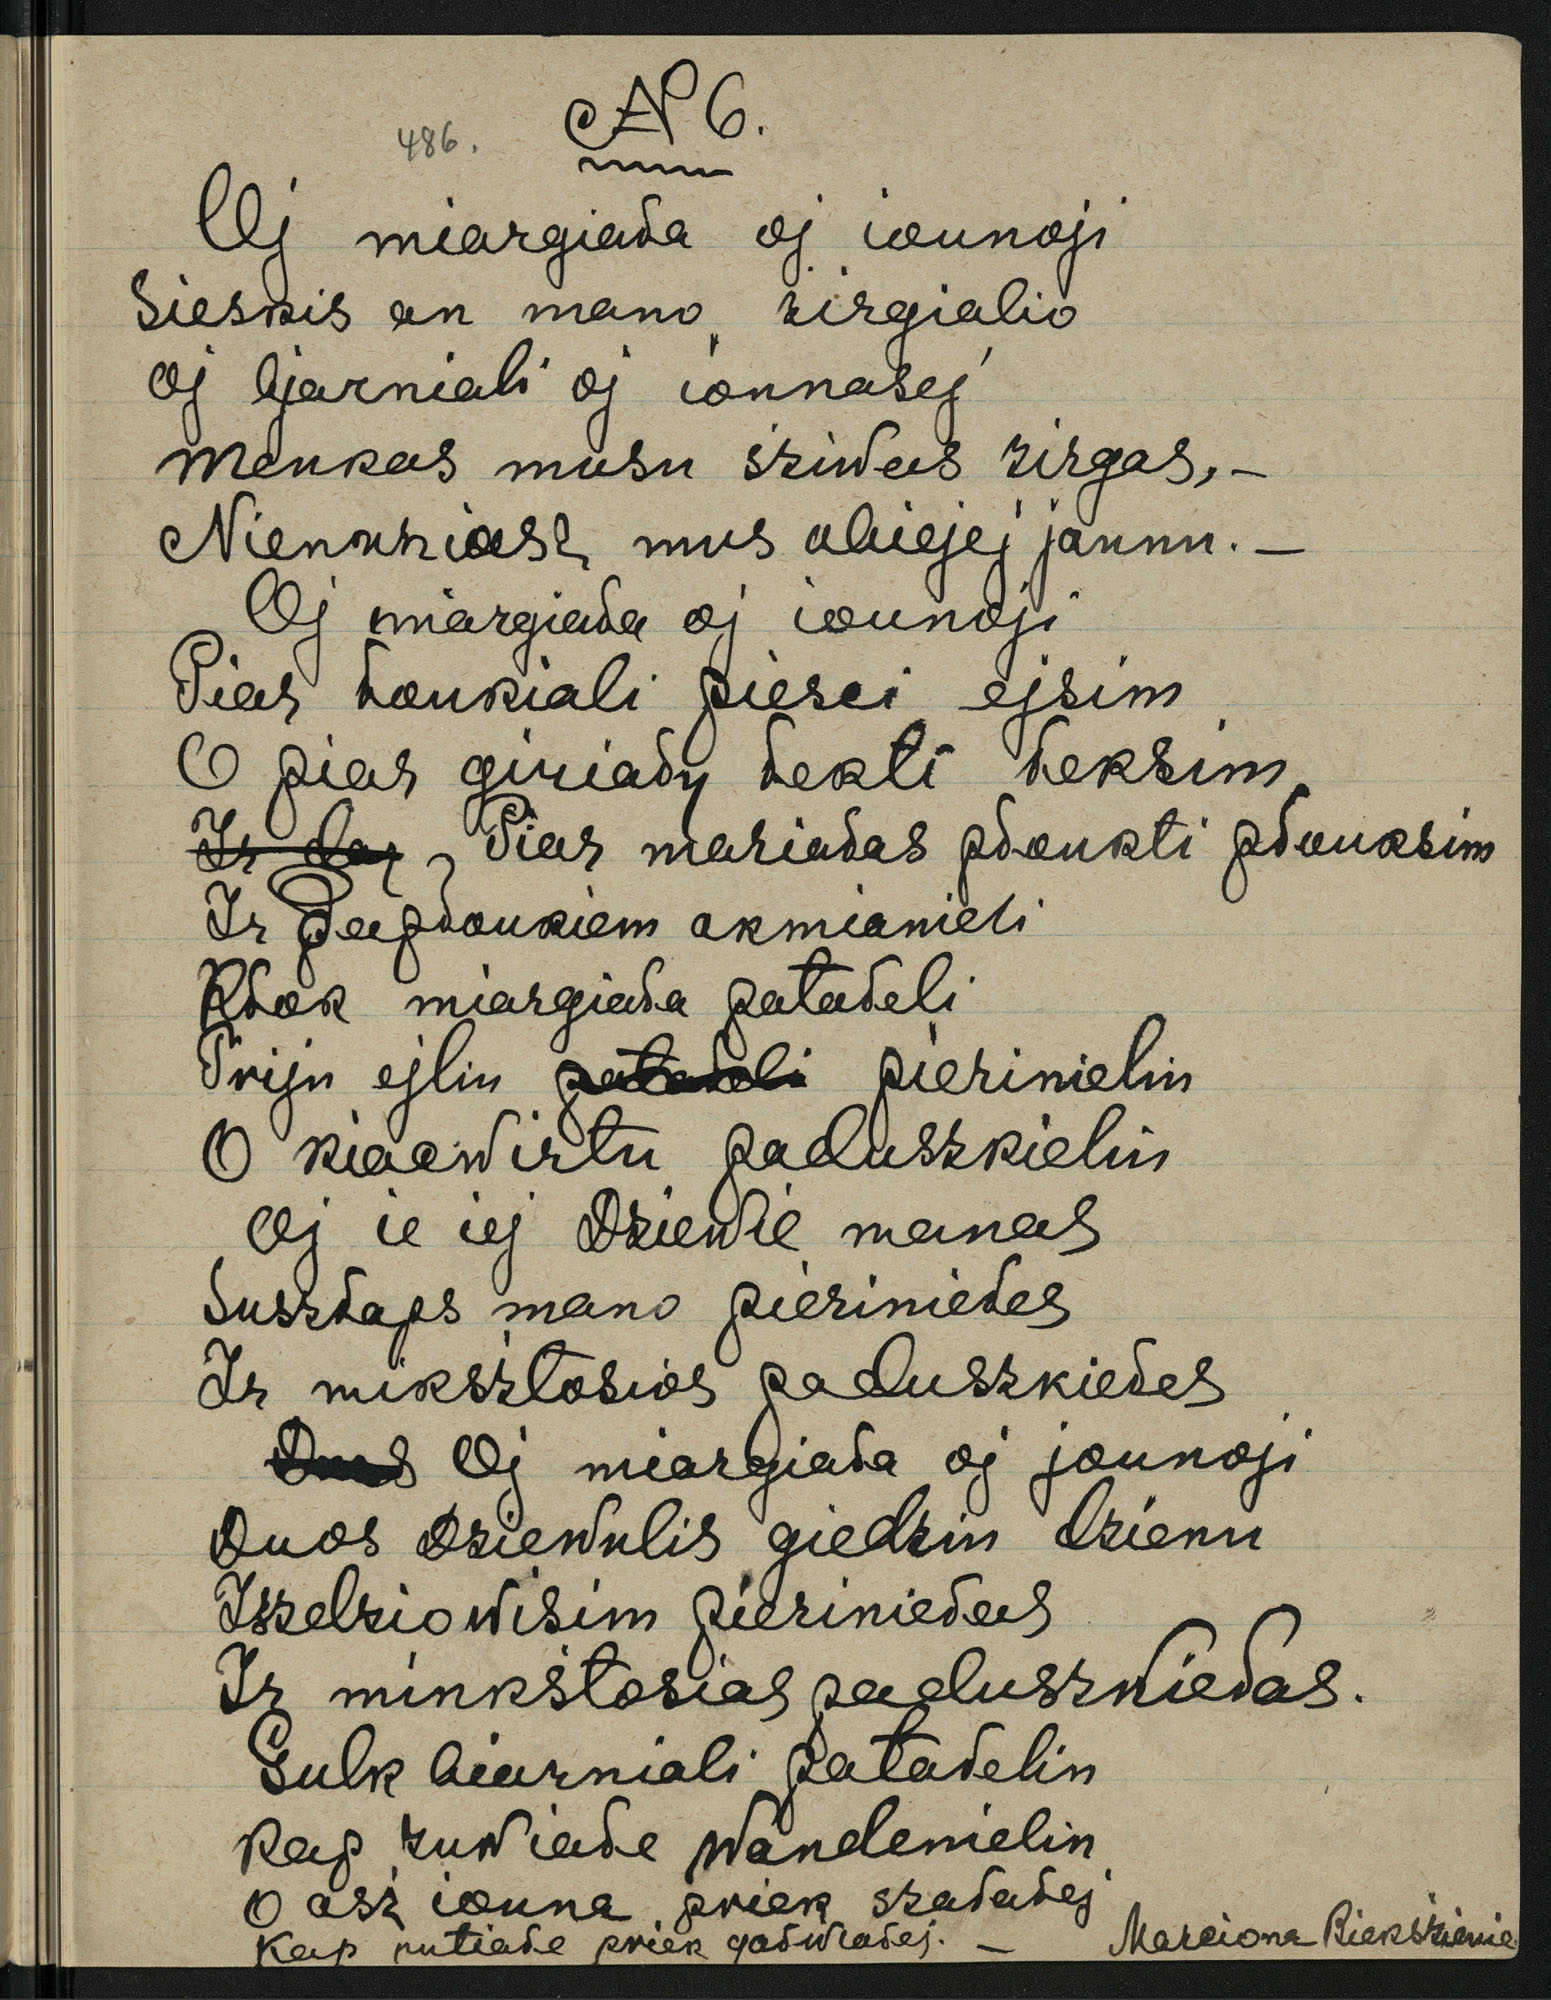 486. № 6.
Oj miargiała oj iaunoji
Sieskis an mano żirgialio
oj bjarniali oj iaunasej
Menkas musu sziwas żirgas, –
Nienunziasz mus abiejej jaunu. –
Oj miargiała oj iaunoji
Piar łaukiali piesci ejsim
O piar giriały łekti łeksim
Ir Piar mariałas płaukti płauksim
Ir Papłaukiem akmianieli
Kłok miargiała patałeli
Trijn ejlin pierinielin
O kiacwirtu paduszkielin
Oj ie iej Dziewie manas
Suszłaps mano pieriniełes
Ir miksztosios paduszkiełes
Oj miargiała oj jaunoji
Duos Dziewulis giedzin dzienu
Iszdziowisim pieriniełas
Ir minksztosias paduszkiełas.
Gulk biarniali patałelin
Kap żuwiałe wandenielin
O asz iauna priek szałałej
Kap rutiałe priek gałwiałej. –
Marciona Biekszienie